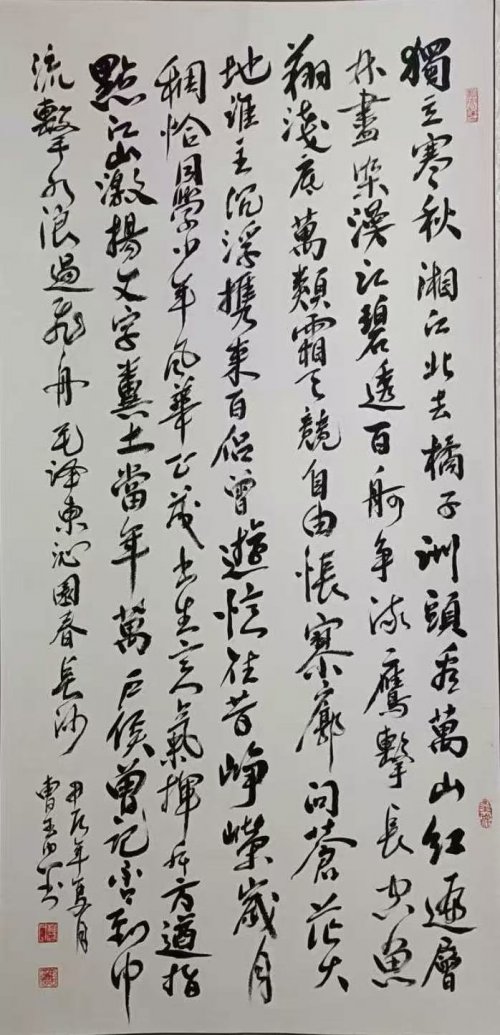 獨立寒秋湘江北去橘子洲頭看萬山紅遍層
林盡染漫江碧透百舸争流鷹擊長空魚
翔淺底萬類霜天競自由悵寥廓問蒼茫大
地誰主沉浮携來百侣曾遊憶往昔崢嶸歲月
稠恰同學少年風華正茂書生意氣揮斥方遒指
點江山激揚文字糞土當年萬户侯曾記否到中
流擊水浪遏飛舟毛泽東沁園春長沙
甲辰年夏月
曹玉